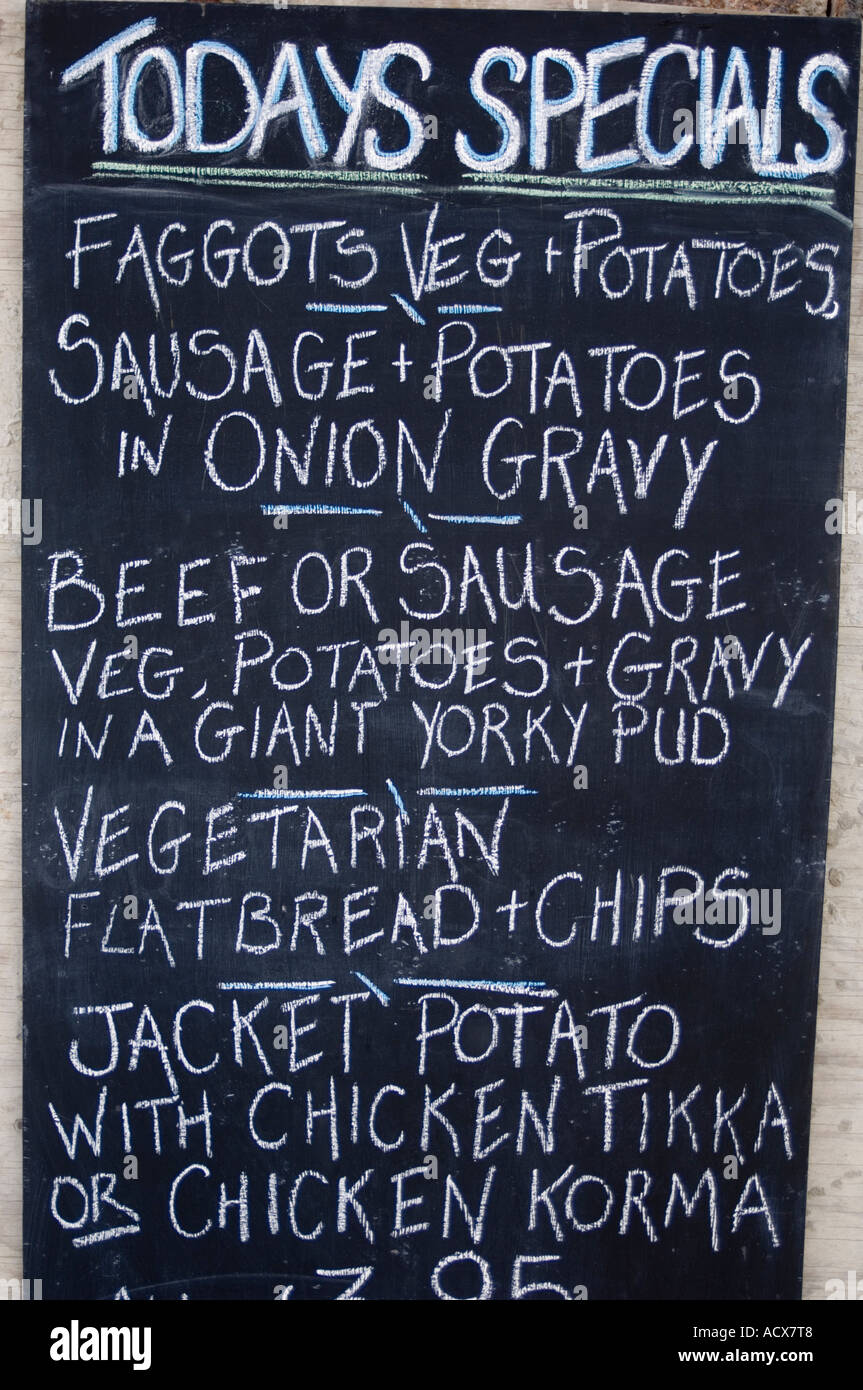 TODAYS SPECIALS
FAGGOTS VEG + POTATOES
SAUSAGE + POTATOES
IN ONION GRAVY
BEEF OR SAUSAGE
VEG, POTATOES + GRAVY
IN A GIANT YORKY PUD
VEGETARIAN
FLATBREAD + CHIPS
JACKET POTATO
WITH CHICKEN TIKKA
OR CHICKEN KORMA
95
alamy
Image ID: ACX7T8
www.alamy.com